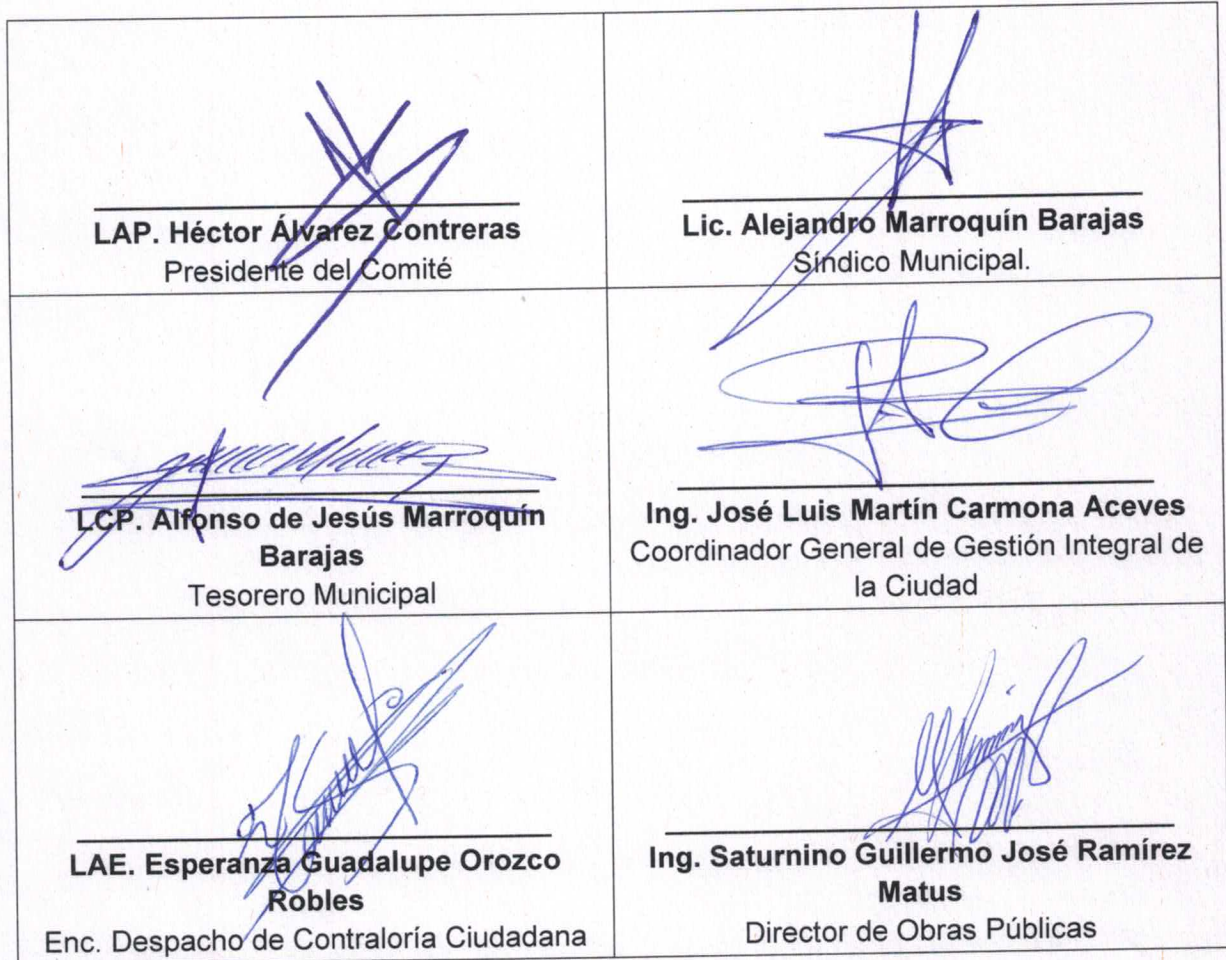 LAP. Héctor Álvarez Contreras
Presidente del Comité
Lic. Alejandro Marroquín Barajas
Síndico Municipal.
LCP. Alfonso de Jesús Marroquín
Barajas
Tesorero Municipal
Ing. José Luis Martín Carmona Aceves
Coordinador General de Gestión Integral de
la Ciudad
LAE. Esperanza Guadalupe Orozco
Robles
Enc. Despacho de Contraloría Ciudadana
Ing. Saturnino Guillermo José Ramírez
Matus
Director de Obras Públicas